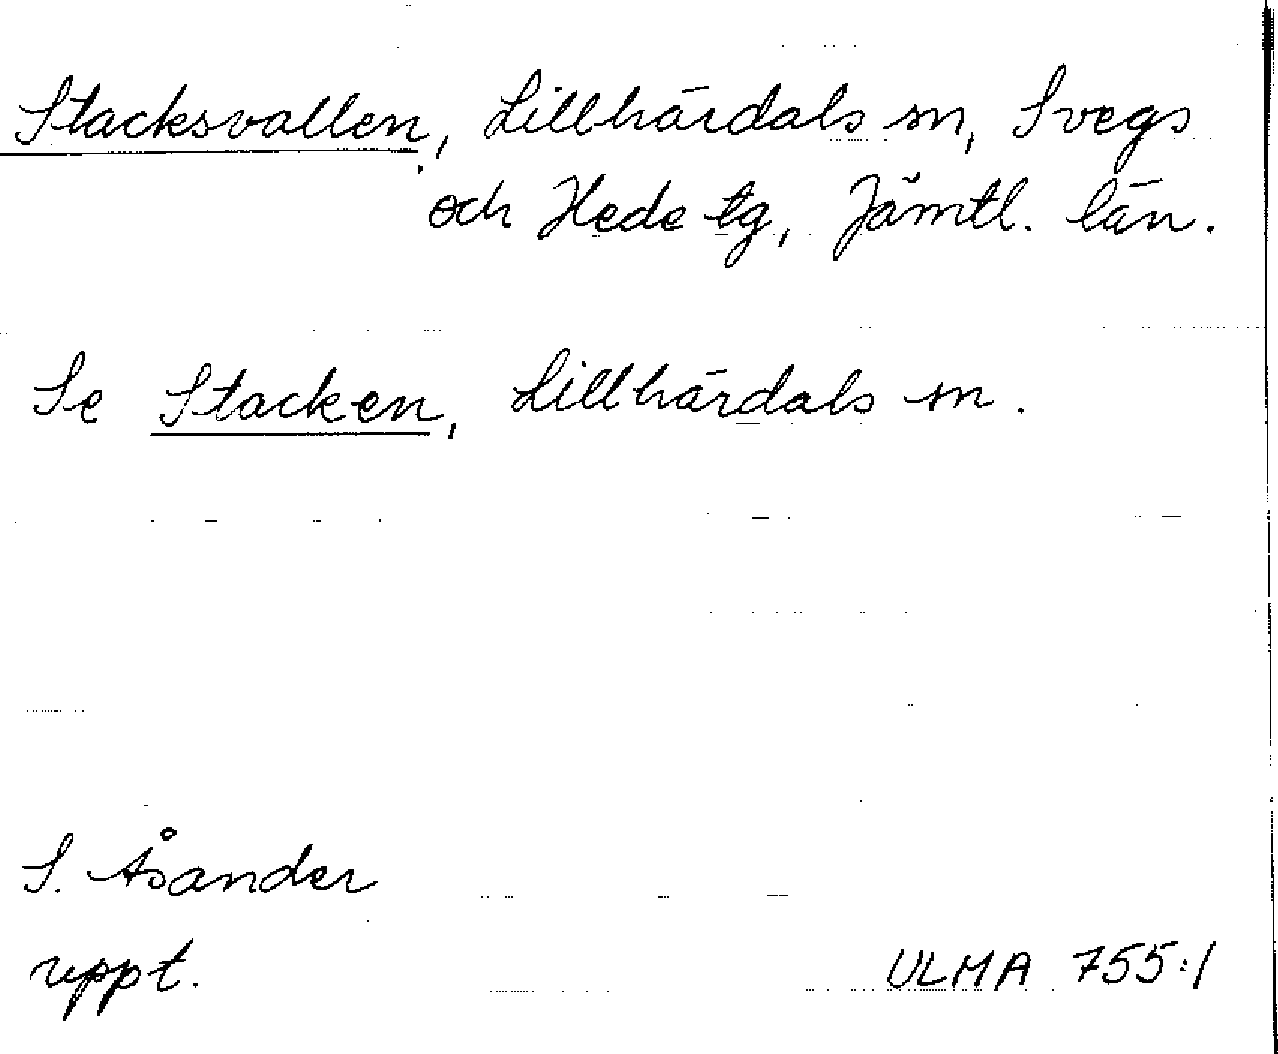 Stacksvallen, Lillhärdals sn, Svegs
och Hede tg, Jämtl. län.
Se Stacken, Lillhärdals sn.
S. Åsander
uppt.
ULMA 755:1